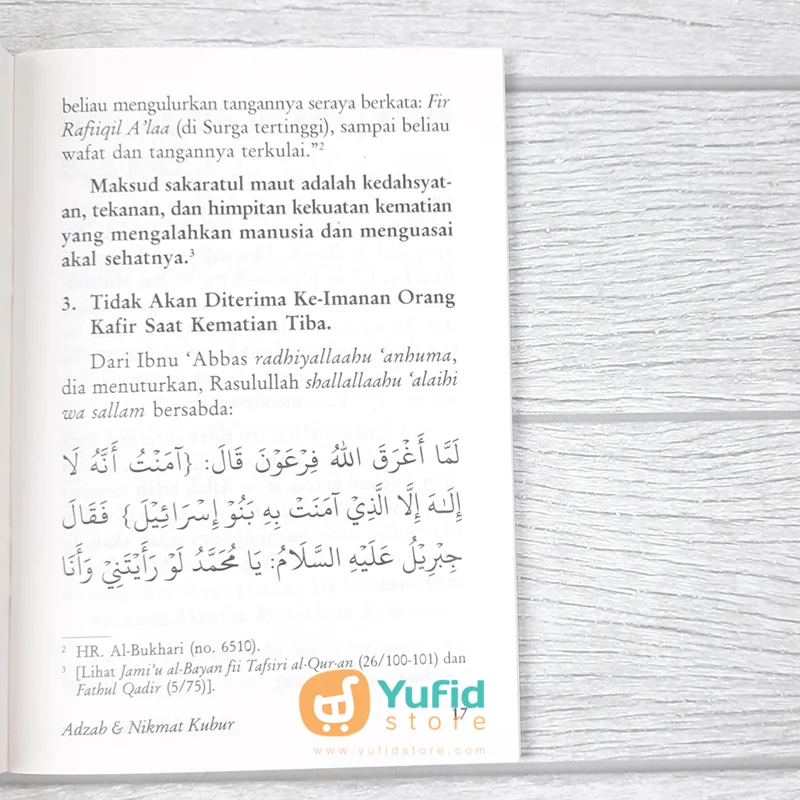 beliau mengulurkan tangannya seraya berkata: Fir
Rafiiqil A'laa (di Surga tertinggi), sampai beliau
wafat dan tangannya terkulai."²
Maksud sakaratul maut adalah kedahsyat-
an, tekanan, dan himpitan kekuatan kematian
yang mengalahkan manusia dan menguasai
akal sehatnya.³
3. Tidak Akan Diterima Ke-Imanan Orang
Kafir Saat Kematian Tiba.
Dari Ibnu ‘Abbas radhiyallaahu ‘anhuma,
dia menuturkan, Rasulullah shallallaahu ‘alaihi
wa sallam bersabda:
لَمَّا أَغْرَقَ اللهُ فِرْعَوْنَ قَالَ: {آمَنْتُ أَنَّهُ لَا
إِلَـٰهَ إِلَّا الَّذِيْ آمَنَتْ بِهِ بَنُوْ إِسْرَائِيْلَ} فَقَالَ
جِبْرِيْلُ عَلَيْهِ السَّلَامُ: يَا مُحَمَّدُ لَوْ رَأَيْتَنِيْ وَأَنَا
² HR. Al-Bukhari (no. 6510).
³ [Lihat Jami'u al-Bayan fii Tafsiri al-Qur-an (26/100-101) dan
Fathul Qadir (5/75)].
Adzab & Nikmat Kubur 17
Yufid
store
www.yufidstore.com